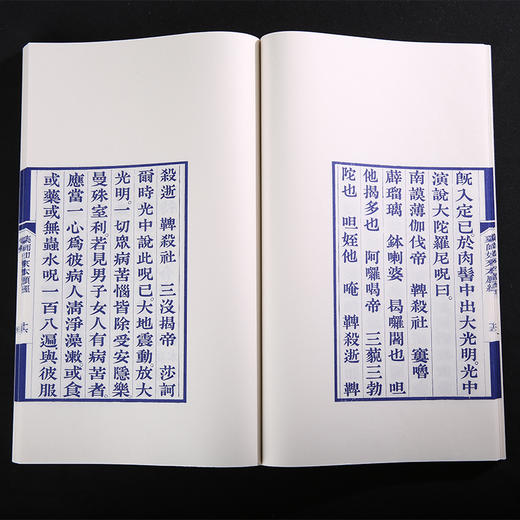 既入定已於肉髻中出大光明。光中
演說大陀羅尼呪曰。
南謨薄伽伐帝　鞞殺社　窶嚕
薜瑠璃　鉢喇婆　曷囉闍也　呾
他揭多也　阿囉喝帝　三藐三勃
陀也　呾姪他　唵　鞞殺逝　鞞
殺逝　鞞殺社　三沒揭帝　莎訶
爾時光中說此呪已。大地震動放大
光明。一切眾病苦惱皆除受安隱樂
曼殊室利。若見男子女人有病苦者。
應當一心爲彼病人清淨澡漱或食
或藥或無蟲水呪一百八遍與彼服